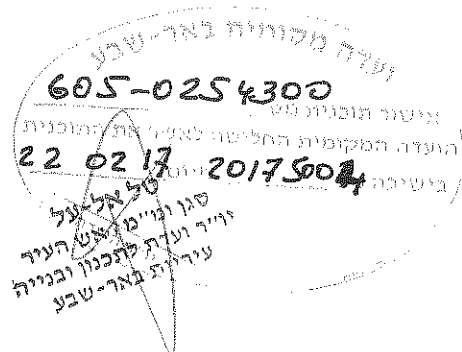 ועדה מקומית באר-שבע
605-0254300
אישור תוכנית מס'
הועדה המקומית החליטה לאשר את התוכנית
בישיבה 2017500 ביום 22 02 17
טל אל-על
סגן ומ"מ ראש העיר
יו"ר ועדת לתכנון ובנייה
עיריית באר-שבע